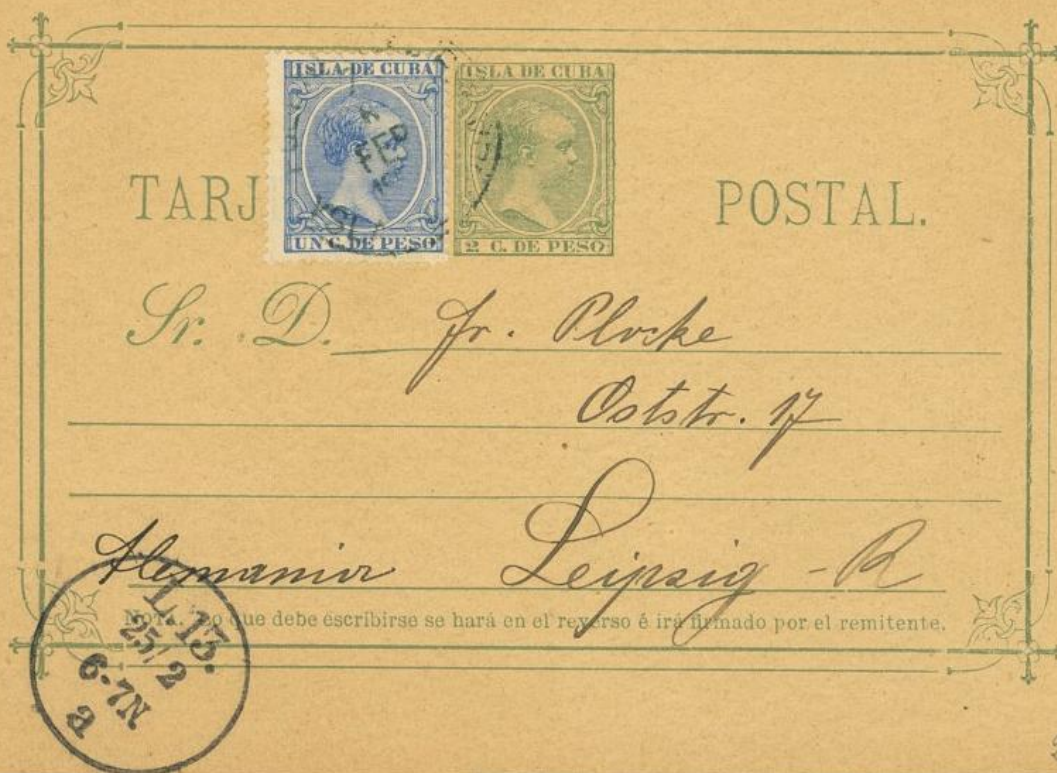 ISLA DE CUBA
UN C. DE PESO
FEB
ISLA DE CUBA
2 C. DE PESO
TARJ POSTAL.
Sr. D. Fr. Plocke
Oststr. 17
Alemania Leipzig - R
NOTA. Lo que debe escribirse se hará en el reverso é irá firmado por el remitente.
L. 13.
25/2
6-7N
a